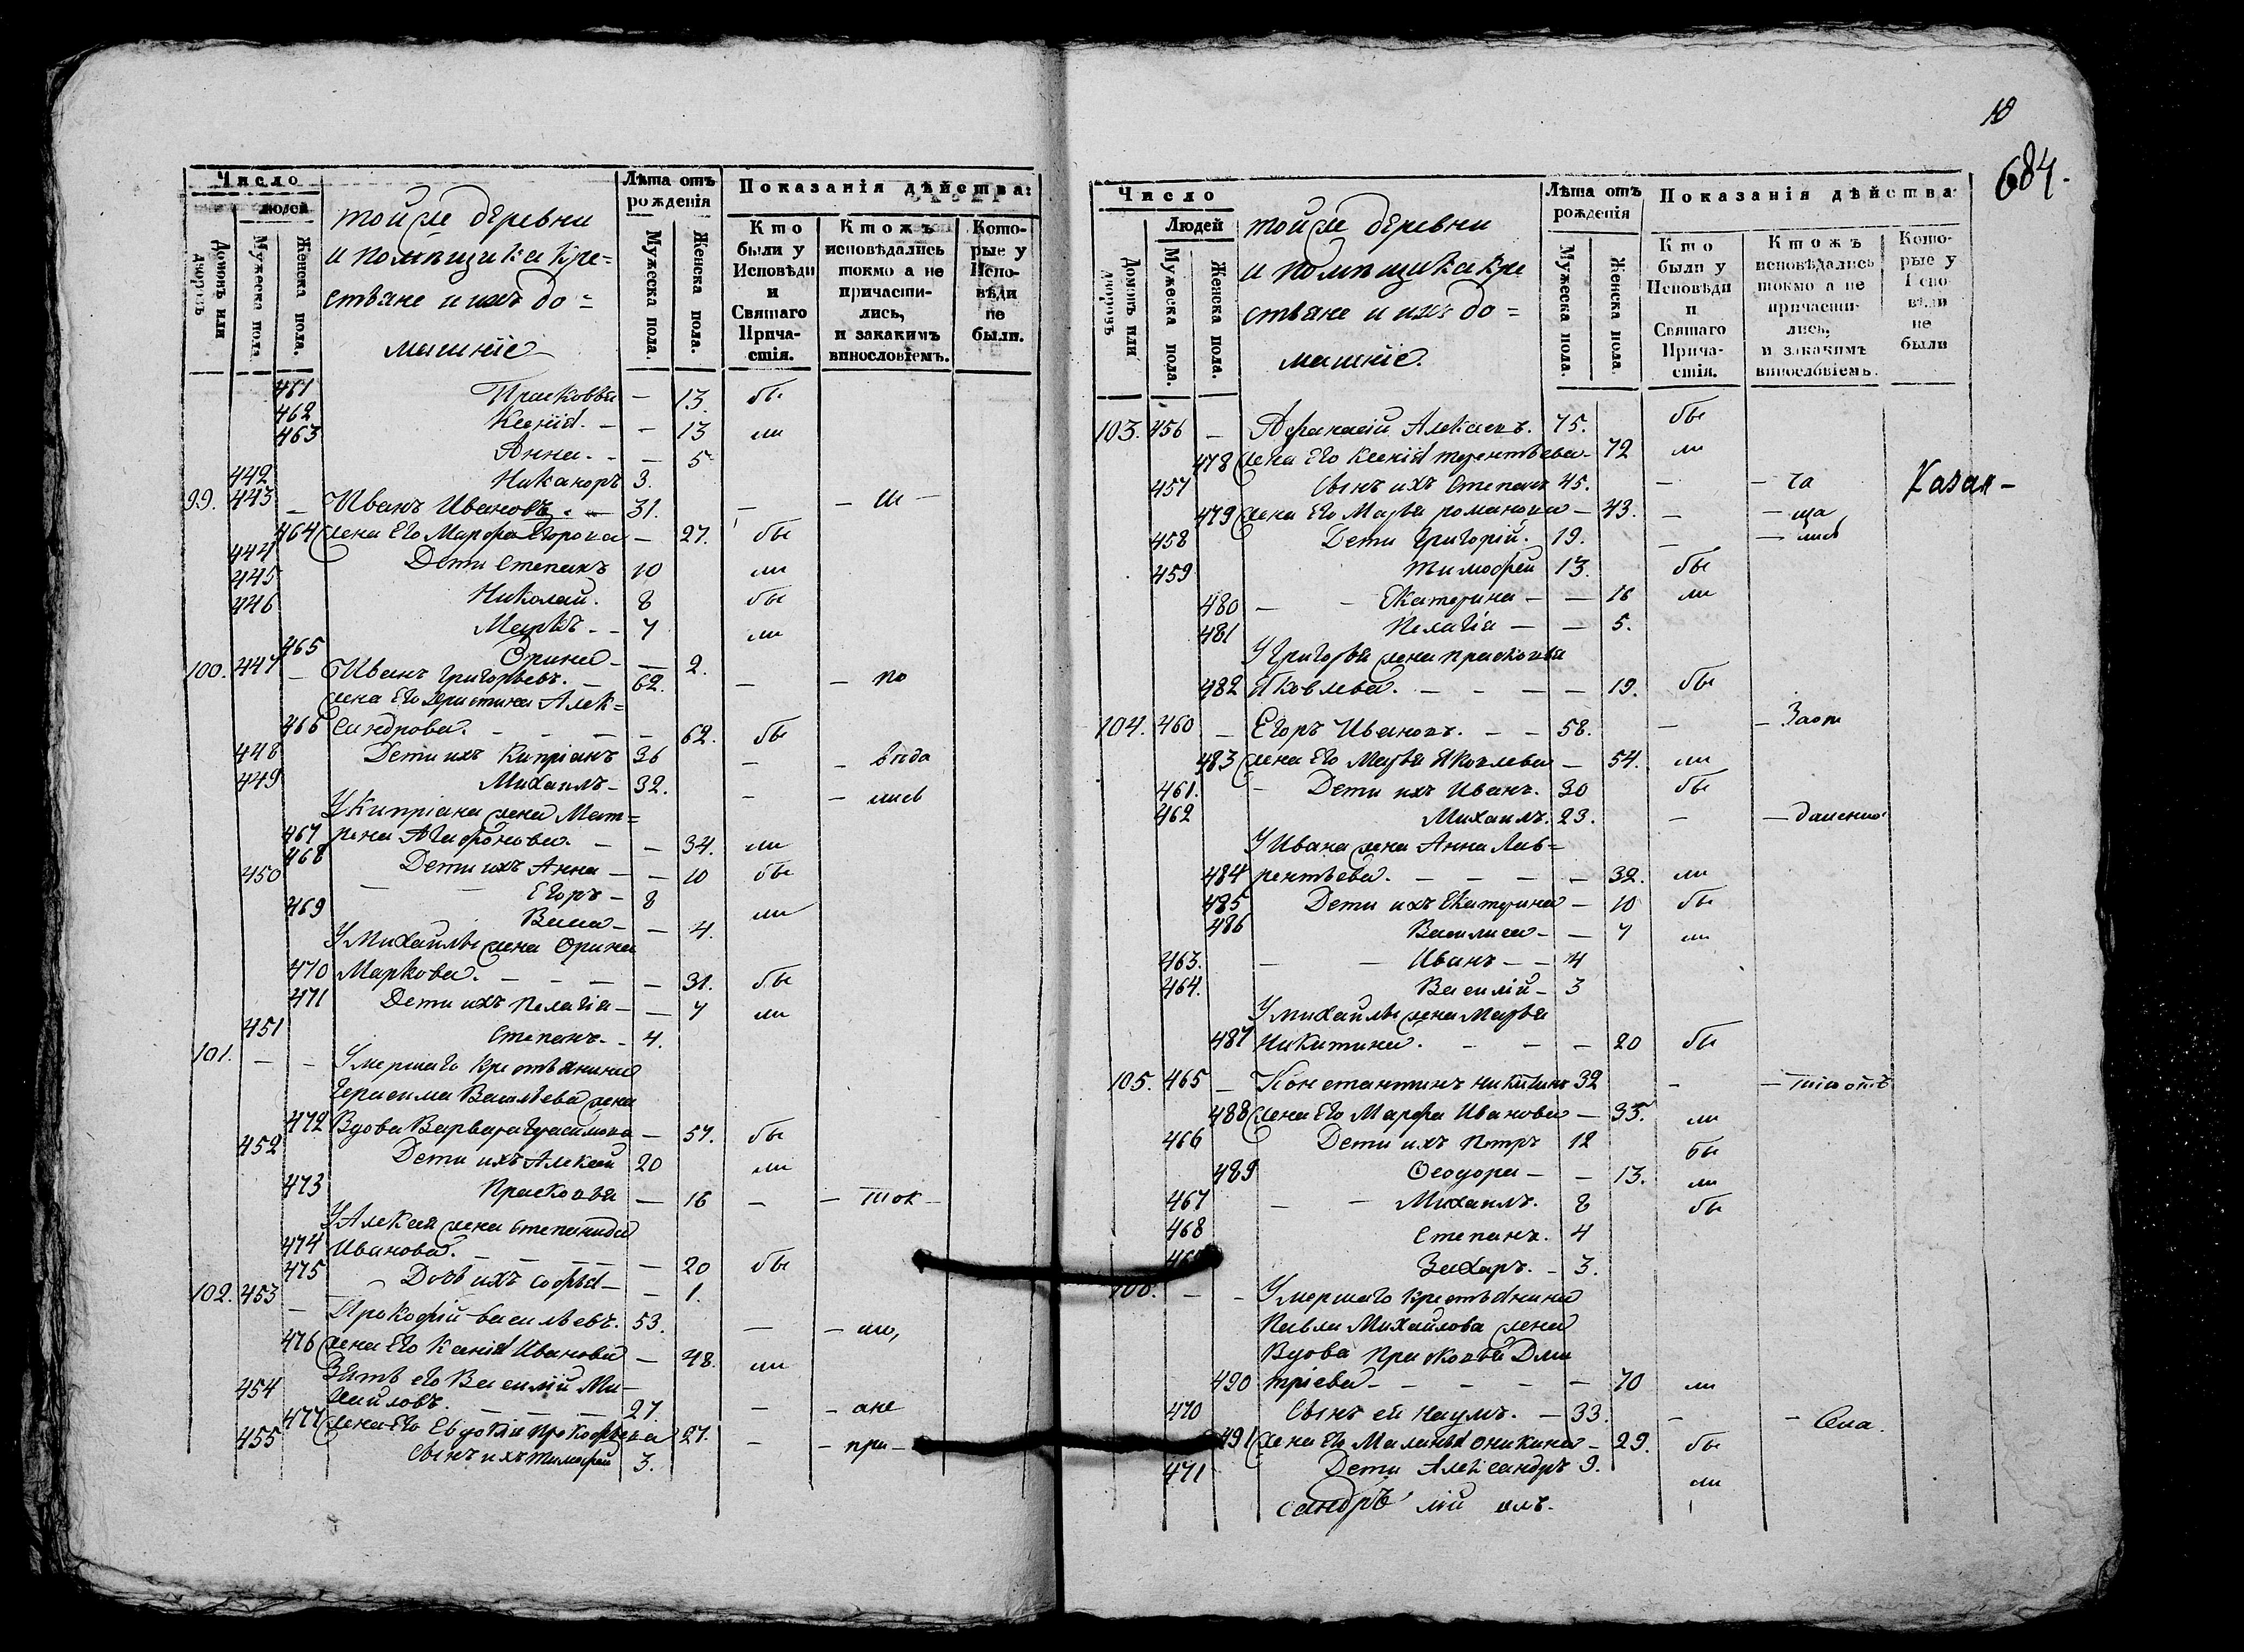 Число
людей
Домовъ или дворовъ
Мужеска пола
Женска пола.
той же деревни
и помѣщика кре=
стьяне и ихъ до=
машніе
Лѣта отъ рожденія
Мужеска пола.
Женска пола.
Показанія дѣйства:
Кто были у Исповѣди и Святаго Причастія.
Ктожъ исповѣдались токмо а не причастились, и закакимъ винословіемъ.
Которые у Исповѣди не были.
461 Прасковья — 13. бы
462 Ксенія. — 13 ли
463 Анна. — 5
442 Никаноръ 3.
99. 443 — Иванъ Ивановъ. — 31. — — ис —
464 жена Его Марфа Егорова — 27. бы
444 Дети Степанъ 10 ли
445 Николай. 8 бы
446 Маркъ. — 7 ли
465 Орина — 2.
100. 447 — Иванъ Григорьевъ. — 62. — — по
жена Его Христина Алек=
466 сандрова. — 62. бы
448 Дети ихъ Кипріанъ 36 — — вѣда
449 Михаилъ — 32. — — лись
У Кипріана жена Мат=
467 рена Агафонова. — 34. ли
468 Дети ихъ Анна — 10 бы
450 Егоръ — 8
469 Васса — 4. ли
У Михайлы жена Орина
470 Маркова. — 31. бы
471 Дети ихъ Пелагія — 7 ли
451 Степанъ. — 4.
101. — — Умершаго крестьянина
Герасима Васильева жена
472 Вдова Варвара Герасимова — 57. бы
452 Дети ихъ Алексей 20 ли
473 Прасковья — 16 — — ток —
У Алексея жена Степанида
474 Иванова. — 20 бы
475 Дочь ихъ Софья — 1.
102. 453 — Прокофій Васильевъ. 53. — — мо,
476 жена Его Ксенія Иванова — 48. ли
Зять его Василій Ми-
454 хайловъ. — 27. — — ане
477 жена Его Евдокія Прокофьева 27. — — при —
455 Сынъ ихъ Тимофей 3.
684.
Число
Людей
Домовъ или дворовъ
Мужеска пола.
Женска пола.
той же деревни
и помѣщика кре
стьяне и ихъ до=
машніе.
Лѣта отъ рожденія
Мужеска пола.
Женска пола.
Показанія дѣйства
Кто были у Исповѣди и Святаго Причастія.
Ктожъ исповѣдались токмо а не причастились, и закакимъ винословіемъ.
Которые у Исповѣди не были
103. 456 — Афанасій Алексѣвъ. 75. бы
478 жена Его Ксенія Терентьева — 72 ли
457 Сынъ ихъ Степанъ 45. — — ча
Казан —
479 жена Его Марья Романова — 43. — — ща
458 Дети Григорій. 19. — — лись
459 Тимофей 13. бы
480 — — Екатерина — 16 ли
481 Пелагія — 5.
У Григорья жена Прасковья
482 Яковлева. — 19. бы
104. 460 — Егоръ Ивановъ. — 58. — — Заот
483 жена Его Марья Яковлева — 54. ли
461. — Дети ихъ Иванъ. 30 бы
462 Михаилъ. 23. — — далению
У Ивана жена Анна Лав=
484 рентьева. — 32. ли
485 Дети ихъ Екатерина — 10 бы
486 Василиса — 7 ли
463. — — Иванъ — 4
464. Василій — 3
У Михайлы жена Марья
487 Никитина. — 20 бы
105. 465 — Константинъ Никитинъ 32 — — тіи отъ
488 жена Его Марфа Иванова — 35. ли
466 Дети ихъ Петръ 12 бы
489 Феодора — 13. ли
467 — — Михаилъ. 8 бы
468 Степанъ. 4
469 Захаръ. — 3.
106. — — Умершаго крестьянина
Павла Михайлова жена
Вдова Прасковья Дми
490 тріева — 70 ли
470 Сынъ ей Наумъ. — 33. — — Села.
491 жена Его Маланья Оникина — 29. бы
471 Дети Александръ 9. ли
сандръ лій илъ.